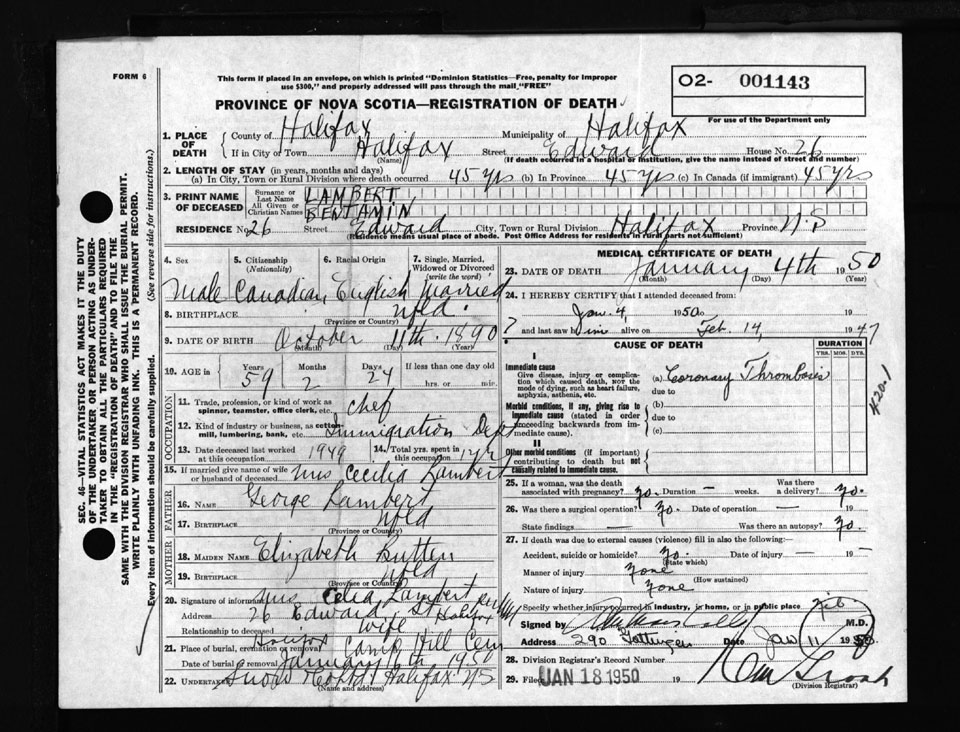 FORM 6
This form if placed in an envelope, on which is printed "Dominion Statistics—Free, penalty for improper
use $300," and properly addressed will pass through the mail "FREE"
O2- 001143
For use of the Department only
PROVINCE OF NOVA SCOTIA—REGISTRATION OF DEATH
SEC. 46—VITAL STATISTICS ACT MAKES IT THE DUTY
OF THE UNDERTAKER OR PERSON ACTING AS UNDER-
TAKER TO OBTAIN ALL THE PARTICULARS REQUIRED
IN THE "REGISTRATION OF DEATH" AND TO FILE THE
SAME WITH THE DIVISION REGISTRAR WHO SHALL ISSUE THE BURIAL PERMIT.
WRITE PLAINLY WITH UNFADING INK. THIS IS A PERMANENT RECORD.
Every item of information should be carefully supplied. (See reverse side for instructions.)
1. PLACE OF DEATH County of Halifax Municipality of Halifax
If in City or Town Halifax (Name) Street Edward House No. 26
(If death occurred in a hospital or institution, give the name instead of street and number)
2. LENGTH OF STAY (in years, months and days)
(a) In City, Town or Rural Division where death occurred 45 yrs (b) In Province 45 yrs (c) In Canada (if immigrant) 45 yrs
3. PRINT NAME OF DECEASED Surname or Last Name LAMBERT
All Given or Christian Names BENJAMIN
RESIDENCE No. 26 Street Edward City, Town or Rural Division Halifax Province N.S
(Residence means usual place of abode. Post Office Address for residents in rural parts not sufficient)
4. Sex 5. Citizenship (Nationality) 6. Racial Origin 7. Single, Married, Widowed or Divorced (write the word)
Male Canadian English Married
8. BIRTHPLACE Nfld.
(Province or Country)
9. DATE OF BIRTH October 11th 1890
(Month) (Day) (Year)
10. AGE in Years 59 Months 2 Days 24 If less than one day old hrs. or min.
OCCUPATION
11. Trade, profession, or kind of work as
spinner, teamster, office clerk, etc. chef
12. Kind of industry or business, as cotton-
mill, lumbering, bank, etc. Immigration Dept
13. Date deceased last worked at this occupation 1949 14. Total yrs. spent in this occupation 1 yr
15. If married give name of wife
or husband of deceased Mrs Cecilia Lambert
FATHER
16. NAME George Lambert
17. BIRTHPLACE Nfld
(Province or Country)
MOTHER
18. MAIDEN NAME Elizabeth
19. BIRTHPLACE Nfld
(Province or Country)
20. Signature of informant Mrs Celia Lambert
Address 26 Edward St Halifax
Relationship to deceased wife
21. Place of burial, cremation or removal Halifax Camp Hill Cem
Date of burial or removal January 1950
22. Undertaker Snow Halifax NS
(Name and address)
MEDICAL CERTIFICATE OF DEATH
23. DATE OF DEATH January 4th 1950
(Month) (Day)
24. I HEREBY CERTIFY that I attended deceased from:
Jan. 4, 1950 to
and last saw him alive on Feb. 14, 1947
CAUSE OF DEATH DURATION
YRS. MOS. DYS.
I
Immediate cause
Give disease, injury or complica-
tion which caused death, NOT the
mode of dying, such as heart failure,
asphyxia, asthenia, etc.
(a) Coronary Thrombosis
due to
420.1
Morbid conditions, if any, giving rise to
immediate cause (stated in order
proceeding backwards from im-
mediate cause).
(b)
due to
(c)
II
Other morbid conditions (if important)
contributing to death but not
causally related to immediate cause.
25. If a woman, was the death
associated with pregnancy? No. Duration — weeks. Was there a delivery? No.
26. Was there a surgical operation? No. Date of operation — 19 —
State findings — Was there an autopsy? No.
27. If death was due to external causes (violence) fill in also the following:
Accident, suicide or homicide? No. Date of injury — 19 —
(State which)
Manner of injury None
(How sustained)
Nature of injury None
Specify whether injury occurred in industry, in home, or in public place
Signed by M.D.
Address 290 Gottingen Date Jan 11 1950
28. Division Registrar's Record Number
29. Filed JAN 18 1950 19
(Division Registrar)